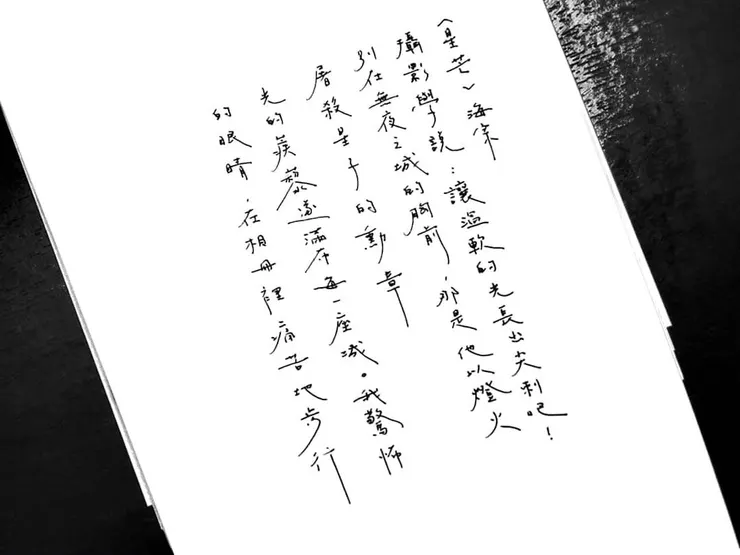 〈星芒〉海笨
攝影學說：讓溫軟的光長出尖刺吧！
別在無夜之城的胸前，那是他以燈火
屠殺星子的勳章
光的蒺藜遂滿布每一座城。我驚怖
的眼睛，在相冊裡痛苦地步行